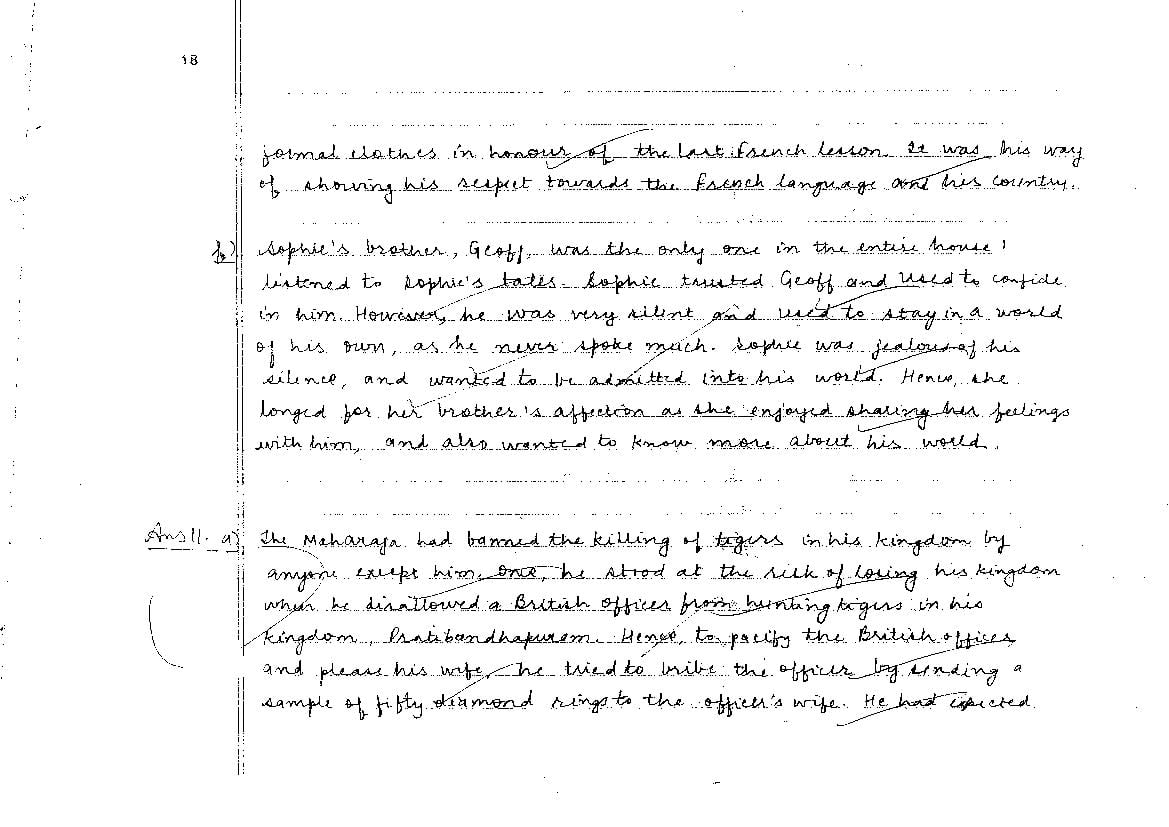 18
formal clothes in honour of the last French lesson. It was his way
of showing his respect towards the French language and his country.
b) Sophie's brother, Geoff, was the only one in the entire house
listened to Sophie's tales. Sophie trusted Geoff and used to confide
in him. However, he was very silent and used to stay in a world
of his own, as he never spoke much. Sophie was jealous of his
silence, and wanted to be admitted into his world. Hence, she
longed for her brother's affection as she enjoyed sharing her feelings
with him, and also wanted to know more about his world.
Ans 11. a) The Maharaja had banned the killing of tigers in his kingdom by
anyone except him. Once, he stood at the risk of losing his kingdom
when he disallowed a British officer from hunting tigers in his
kingdom, Pratibandhapuram. Hence, to pacify the British officer
and please his wife, he tried to bribe the officer by sending a
sample of fifty diamond rings to the officer's wife. He had expected